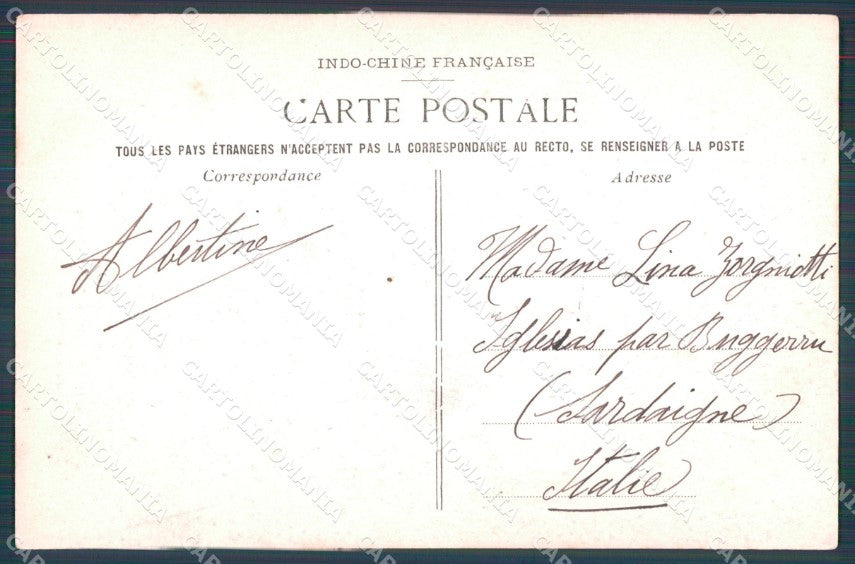 INDO-CHINE FRANÇAISE
CARTE POSTALE
TOUS LES PAYS ÉTRANGERS N'ACCEPTENT PAS LA CORRESPONDANCE AU RECTO, SE RENSEIGNER A LA POSTE
Correspondance
Adresse
Albertine
Madame Lina Zorgniotti
Iglesias par Buggerru
(Sardaigne)
Italie
CARTOLINOMANIA